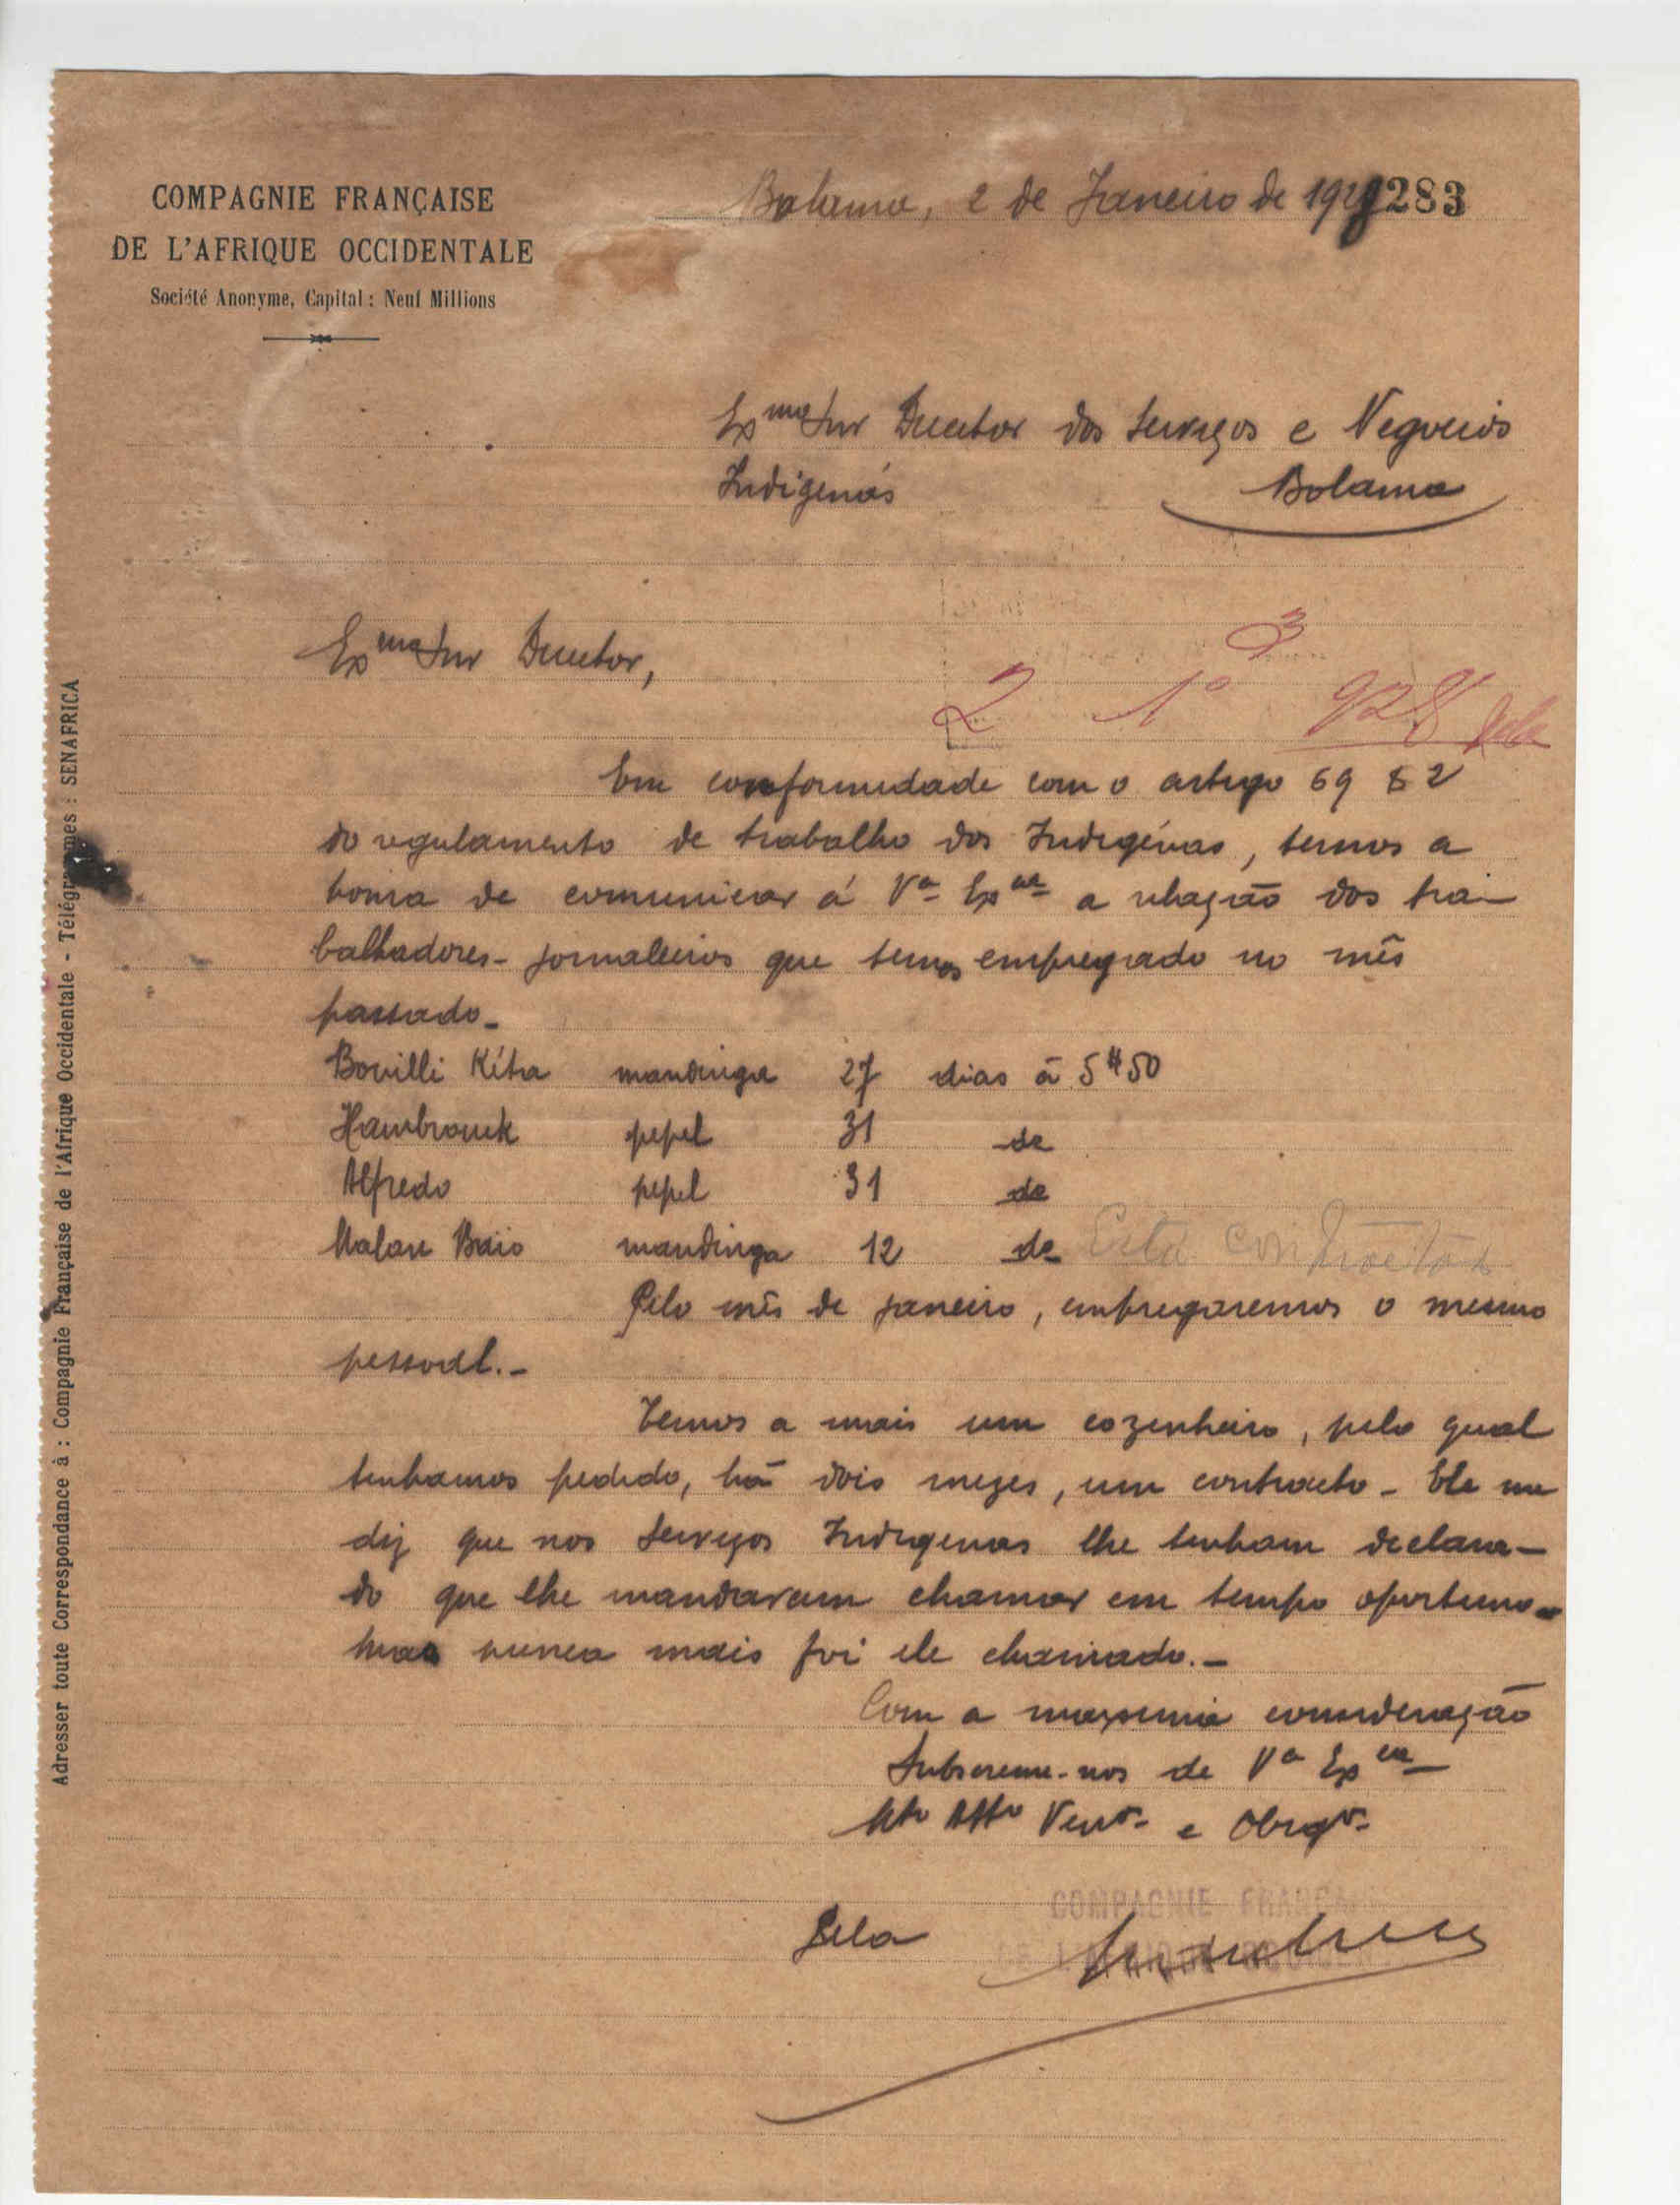 COMPAGNIE FRANÇAISE
DE L'AFRIQUE OCCIDENTALE
Société Anonyme, Capital : Neuf Millions
Bolama, 2 de Janeiro de 1928
283
Exmo Snr Director dos Serviços e Negocios
Indigenas Bolama
Exmo Snr Director,
3
2 1º 928
Em conformidade com o artigo 69 § 2
do regulamento de trabalho dos Indigénas, temos a
honra de comunicar á Vª Exª a relação dos tra-
balhadores-jornaleiros que temos empregado no mês
passado_
Bouilli Kéita mandinga 27 dias à 5$50
Hambrouck pepel 31 de
Alfredo pepel 31 de
Malan Baio mandinga 12 de Esta
Pelo mês de janeiro, empregaremos o mesmo
pessoal._
Temos a mais um cozenheiro, pelo qual
tenhamos pedido, há dois mezes, um contracto_ Ele me
diz que nos Serviços Indigenas lhe tenham declara-
do que lhe mandavam chamar em tempo oportuno_
Mas nunca mais foi ele chamado._
Com a maxima consideração
Subscreme-nos de Vª Exª
Mto Atto Venr e Obrgº
Pela
COMPAGNIE FRANÇAISE
Adresser toute Correspondance à : Compagnie Française de l'Afrique Occidentale - Télégrammes : SENAFRICA